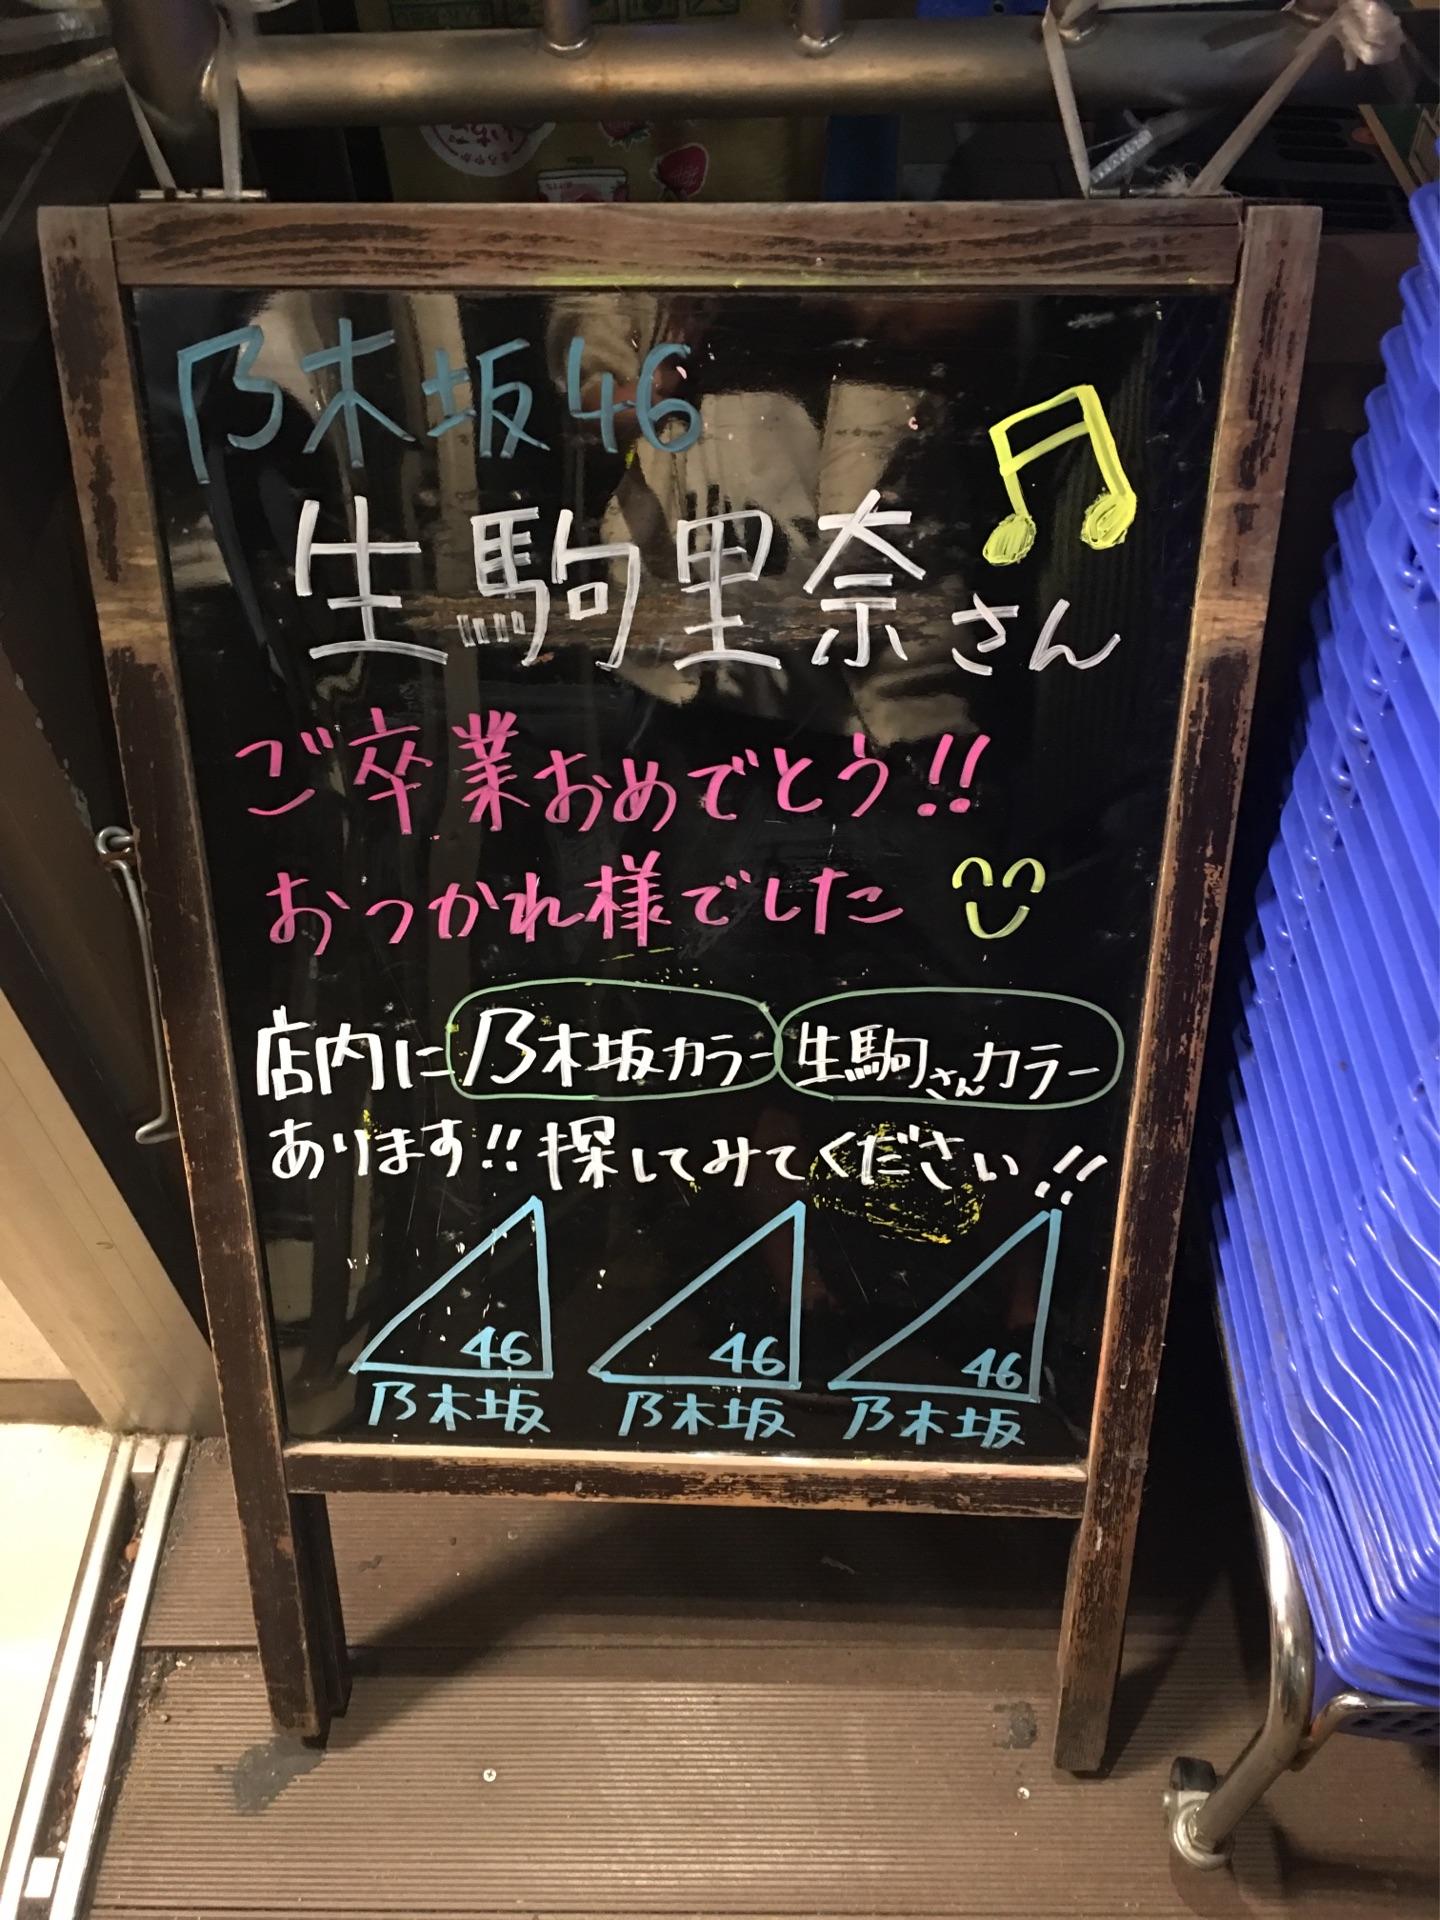 乃木坂46
生駒里奈さん
ご卒業おめでとう!!
おつかれ様でした
店内に乃木坂カラー 生駒さんカラー
あります!! 探してみてください!!
46 46 46
乃木坂 乃木坂 乃木坂